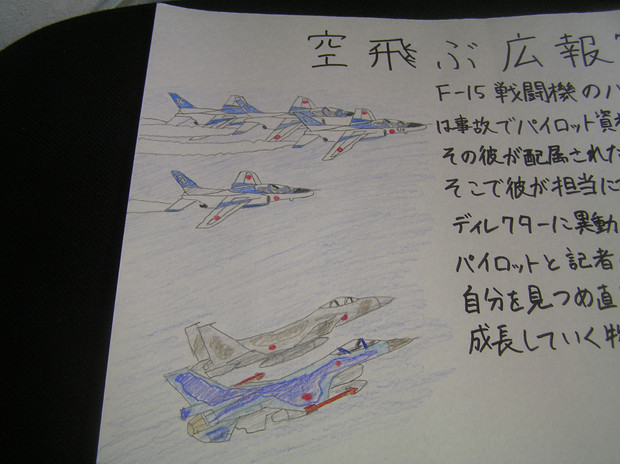 空飛ぶ広報
F-15戦闘機の
は事故でパイロット資
その彼が配属された
そこで彼が担当に
ディレクターに異動
パイロットと記者
自分を見つめ直
成長していく